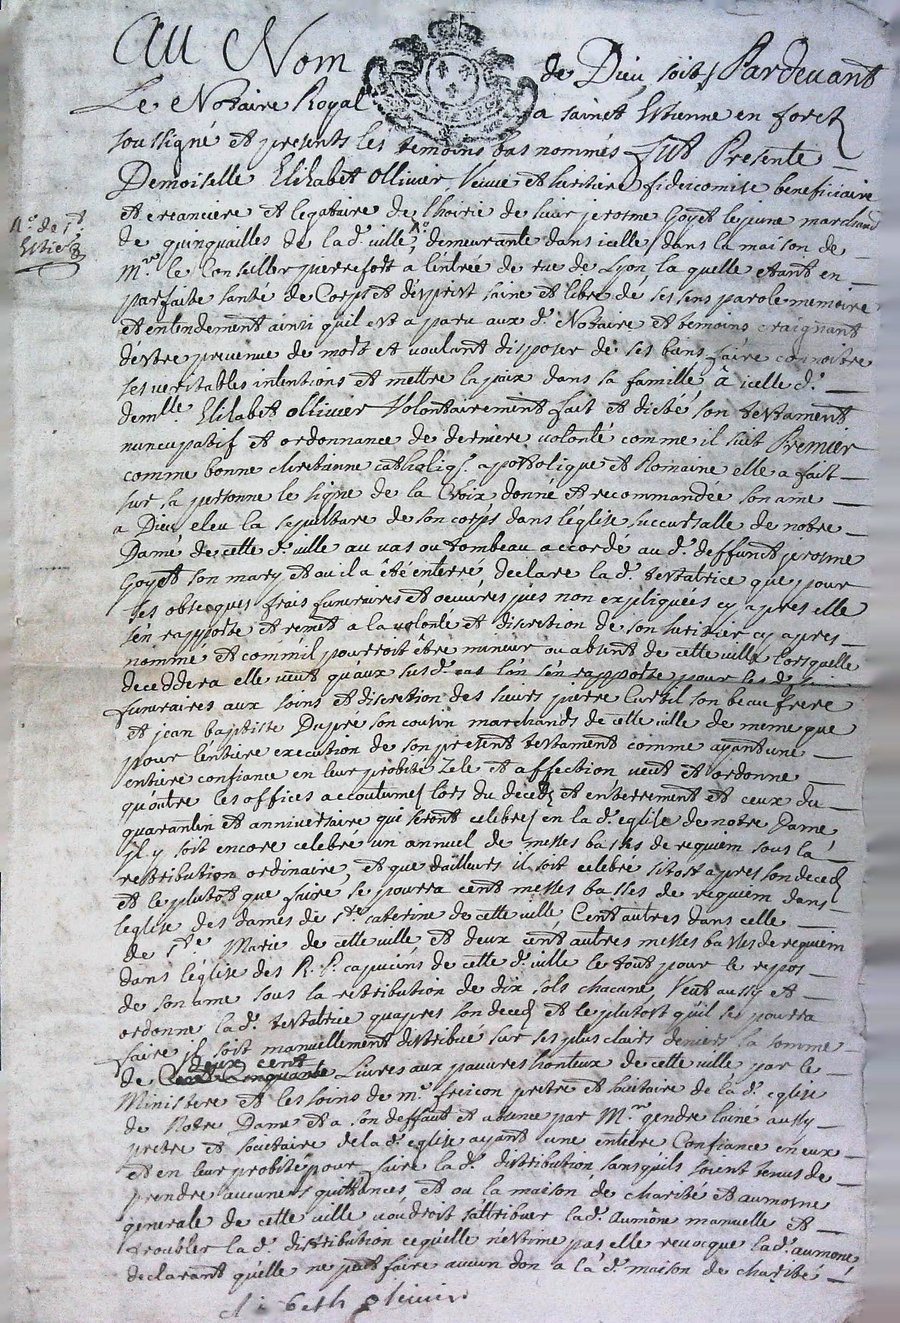 Au Nom de Dieu soit / Pardevant
Le Notaire Royal a sainct Estienne en forez
soussigné et presents les temoins bas nommés fut Presente
Demoiselle Elizabet Ollivier, Veuve et heritiere fideicomise beneficiaire
et creanciere et legataire de l'hoirie de sieur jerosme Goyet le jeune marchand
de quinquailles de la d. ville, demeurante dans icelle dans la maison de
Mr. le Conseiller pierrefort a l'entrée de rue de Lyon, la quelle etant en
parfaite santé de Corps et d'esprit saine et libre de ses sens parole memoire
et entendement ainsi quil est a paru aux d. Notaire et temoins craignant
d'estre prevenue de mort et voulant disposer de ses biens faire connoitre
ses veritables intentions et mettre la paix dans sa famille, a icelle d.
demlle. Elizabet ollivier Volontairement fait et dicté son testament
nuncupatif et ordonnance de derniere volonté comme il suit Premier
comme bonne chretienne catholiq. apostolique et Romaine elle a fait
sur sa personne le signe de la Croix donné et recommandée son ame
a Dieu, eleu la sepulture de son corps dans l'église succursalle de notre
Dame de cette d. ville au vas ou tombeau accordé au d. deffunct jerosme
Goyet son mary et ou il a été enterré, declare la d. testatrice que pour
ses obseques, frais funeraires et oeuvres pies non expliquées cy apres elle
s'en rapporte et remet a la volonté et discretion de son heritier cy apres
nommé et comm'il pourroit être mineur ou absent de cette ville lorsquelle
deceddera elle veut qu'aux susd. cas l'on s'en rapporte pour les d.
funeraires aux soins et discretion des sieurs pierre Curtil son beau frere
et jean baptiste Dupré son cousin marchands de cette ville de meme que
pour l'entiere execution de son present testament comme ayant une
entiere confiance en leur probité zele et affection veut et ordonne
qu'outre les offices accoutumes lors du decedz et enterrement et ceux du
quarantin et anniversaire qui seront celebres en la d. eglise de notre Dame
il y soit encore celebré un annuel de messes basses de requiem sous la
restribution ordinaire, et que d'ailleurs il soit celebré sitost apres son decedz
et le plutôt que faire se pourra cent messes basses de requiem dans
l'eglise des dames de Ste caterine de cette ville Cent autres dans celle
de Ste Marie de cette ville et deux cent autres messes basses de requiem
dans l'église des R. P. capucins de cette d. ville le tout pour le repos
de son ame sous la restribution de dix sols chacune, Veut aussy et
ordonne la d. testatrice qu'apres son decedz et le plutost qu'il se pourra
faire il soit manuellement distribué sur ses plus clairs deniers la somme
deux cent
de Livres aux pauvres honteux de cette ville par le
Ministere et les soins de mr. frecon pretre et sociétaire de la d. eglise
de Notre Dame et a son deffaut et absence par Mr. gendre l'aine aussy
pretre et societaire de la d. eglise ayant une entiere Confiance en eux
et en leur probité pour faire la d. distribution sans quils soient tenus de
prendre aucunes quittances et ou la maison de charité et aumosne
generale de cette ville voudroit s'attribuer la d. Aumône manuelle et
troubler la d. distribution ce quelle n'estime pas elle revocque la d. aumône
declarant qu'elle ne peut faire aucun don a la d. maison de charité
elisabeth olivier